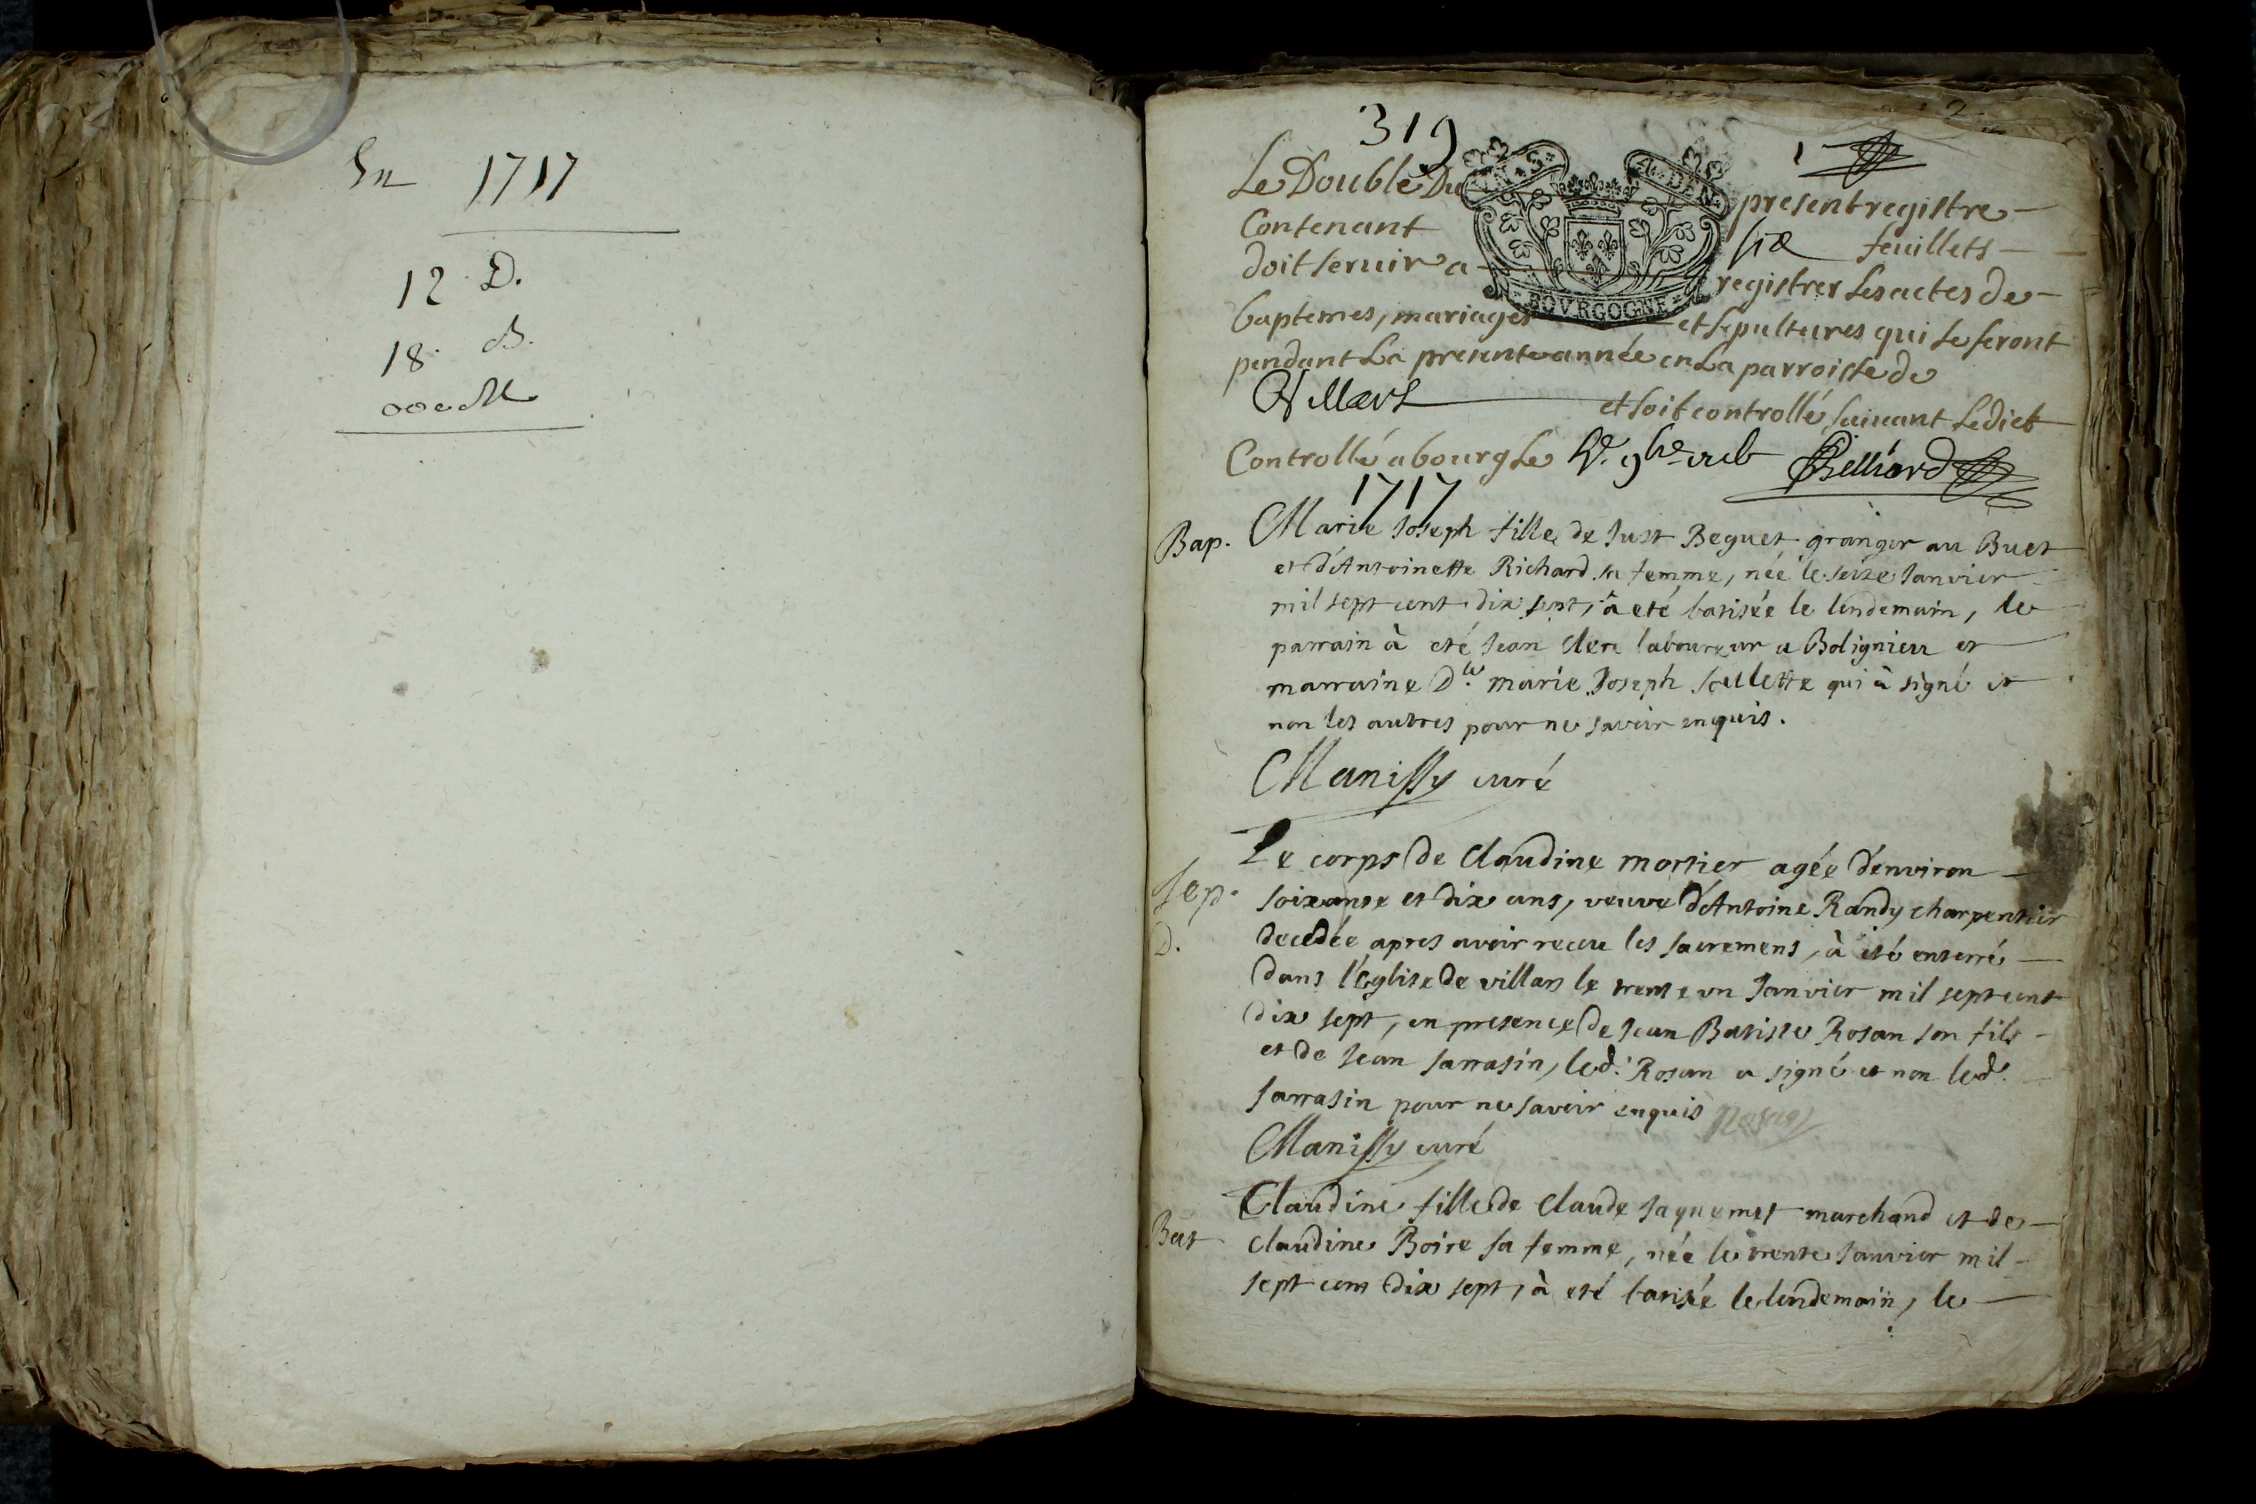 En 1717
12 D.
18 B.
00 e M
319
1
Le Double Du present registre
GN. S. A. DEN.
BOVRGOGNE
Contenant six feuillets
doit seruir a registrer les actes de
baptemes, mariages et sepultures qui se feront
pendant La presente année en La parroisse de
Villars et soit controllé suiuant Ledict
Controllé a bourg Le 9bre Belliard
1717
Bap. Marie Joseph fille de Just Beguet granger au Buet
et d'Antoinette Richard sa femme, née le seize Janvier
mil sept cent dix sept, à eté batisée le lendemain, le
parrain à eté Jean Clerc laboureur a Bolignieu et
marraine Dle. marie Joseph Scellette qui à signé et
non les autres pour ne savoir enquis.
Manissy curé
Sep. Le corps de Claudine mortier agée d'environ
soixante et dix ans, veuve d'Antoine Randy charpentier
D. decedée apres avoir recu les sacremens, à eté enterré
dans l'Eglise de villars le trente un Janvier mil sept cent
dix sept, en presence de Jean Batiste Rosan son fils
et de Jean Sarrasin, led. Rosan a signé et non led.
Sarrasin pour ne savoir enquis Rosan
Manissy curé
Bat. Claudine fille de Claude Jaquemet marchand et de
claudine Boire sa femme, née le trente Janvier mil
sept cent dix sept, à eté batisée le lendemain, le